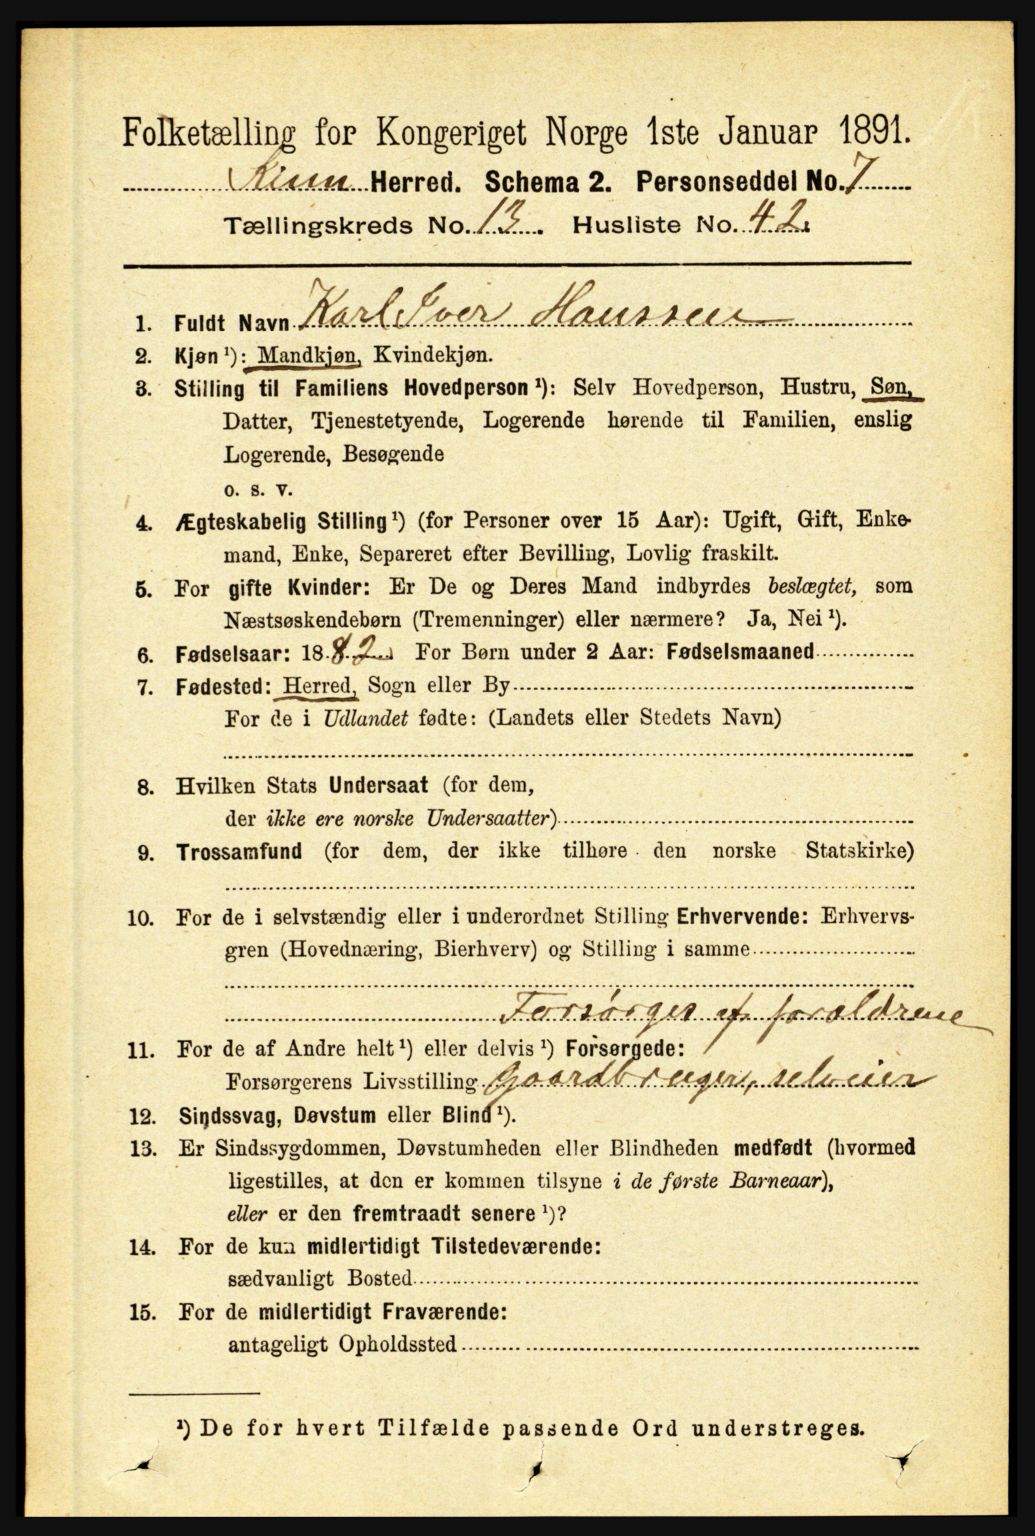 Folketælling for Kongeriget Norge 1ste Januar 1891.
Kinn Herred. Schema 2. Personseddel No. 7
Tællingskreds No. 13. Husliste No. 42.
1. Fuldt Navn Karl Iver Hanssen
2. Kjøn ¹): Mandkjøn, Kvindekjøn.
3. Stilling til Familiens Hovedperson ¹): Selv Hovedperson, Hustru, Søn,
Datter, Tjenestetyende, Logerende hørende til Familien, enslig
Logerende, Besøgende
o. s. v.
4. Ægteskabelig Stilling ¹) (for Personer over 15 Aar): Ugift, Gift, Enke-
mand, Enke, Separeret efter Bevilling, Lovlig fraskilt.
5. For gifte Kvinder: Er De og Deres Mand indbyrdes beslægtet, som
Næstsøskendebørn (Tremenninger) eller nærmere? Ja, Nei ¹).
6. Fødselsaar: 1882. For Børn under 2 Aar: Fødselsmaaned
7. Fødested: Herred, Sogn eller By
For de i Udlandet fødte: (Landets eller Stedets Navn)
8. Hvilken Stats Undersaat (for dem,
der ikke ere norske Undersaatter)
9. Trossamfund (for dem, der ikke tilhøre den norske Statskirke)
10. For de i selvstændig eller i underordnet Stilling Erhvervende: Erhvervs-
gren (Hovednæring, Bierhverv) og Stilling i samme
Forsørges af forældrene
11. For de af Andre helt ¹) eller delvis ¹) Forsørgede:
Forsørgerens Livsstilling Gaardbruger, selveier
12. Sindssvag, Døvstum eller Blind ¹).
13. Er Sindssygdommen, Døvstumheden eller Blindheden medfødt (hvormed
ligestilles, at den er kommen tilsyne i de første Barneaar),
eller er den fremtraadt senere ¹)?
14. For de kun midlertidigt Tilstedeværende:
sædvanligt Bosted
15. For de midlertidigt Fraværende:
antageligt Opholdssted
¹) De for hvert Tilfælde passende Ord understreges.